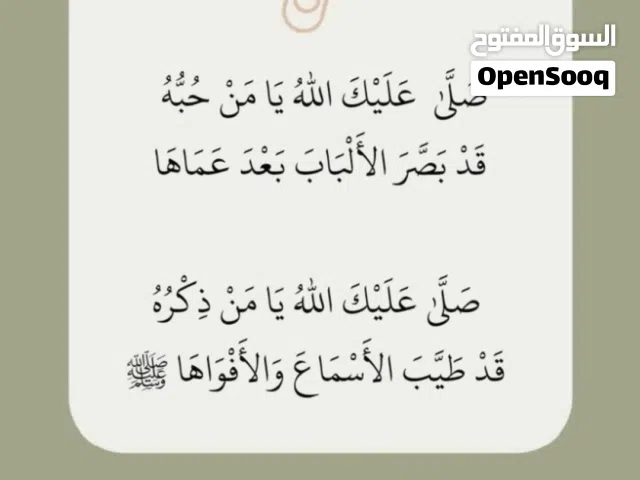 السوق المفتوح
OpenSooq
صَلَّىٰ عَلَيْكَ اللهُ يَا مَنْ حُبُّهُ
قَدْ بَصَّرَ الأَلْبَابَ بَعْدَ عَمَاهَا
صَلَّىٰ عَلَيْكَ اللهُ يَا مَنْ ذِكْرُهُ
قَدْ طَيَّبَ الأَسْمَاعَ وَالأَفْوَاهَا ﷺ